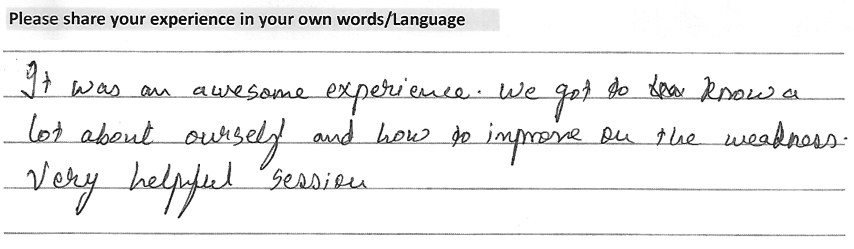 Please share your experience in your own words/Language
It was an awesome experience. We got to know a
lot about ourself and how to improve on the weakness.
Very helpful session